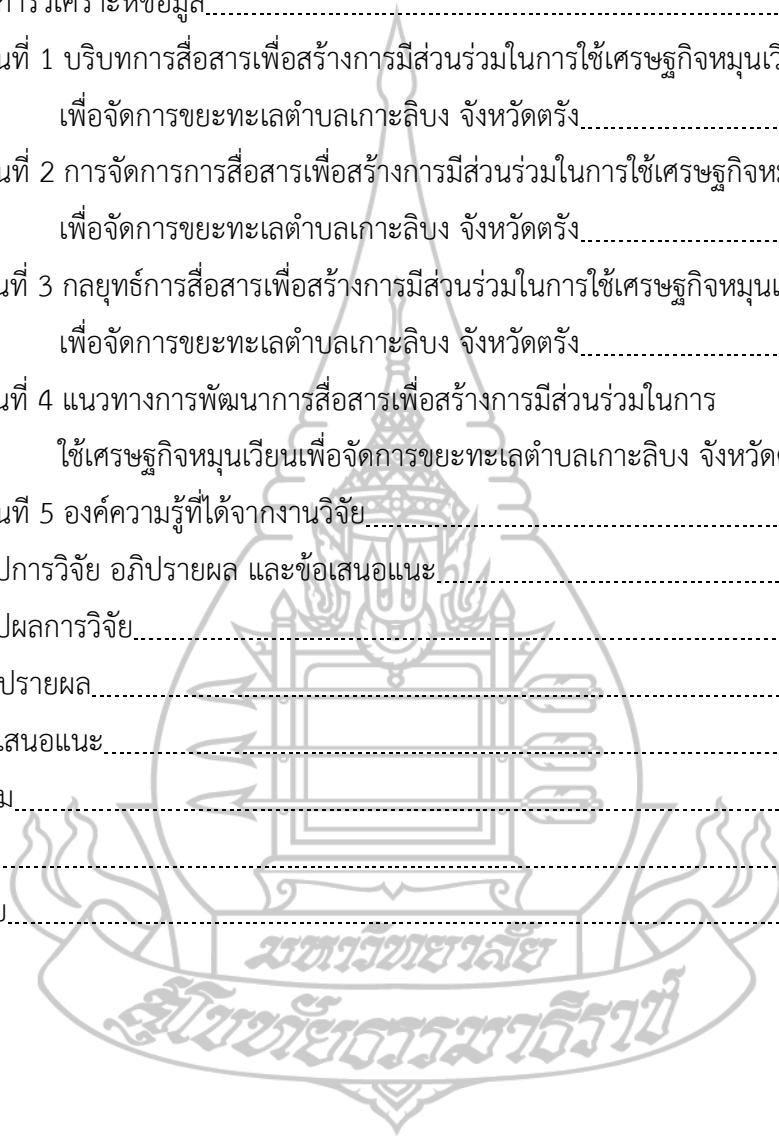 การวิเคราะห์ข้อมูล
นที่ 1 บริบทการสื่อสารเพื่อสร้างการมีส่วนร่วมในการใช้เศรษฐกิจหมุนเวี
เพื่อจัดการขยะทะเลตำบลเกาะลิบง จังหวัดตรัง
นที่ 2 การจัดการการสื่อสารเพื่อสร้างการมีส่วนร่วมในการใช้เศรษฐกิจหมุ
เพื่อจัดการขยะทะเลตำบลเกาะลิบง จังหวัดตรัง
นที่ 3 กลยุทธ์การสื่อสารเพื่อสร้างการมีส่วนร่วมในการใช้เศรษฐกิจหมุนเ
เพื่อจัดการขยะทะเลตำบลเกาะลิบง จังหวัดตรัง
นที่ 4 แนวทางการพัฒนาการสื่อสารเพื่อสร้างการมีส่วนร่วมในการ
ใช้เศรษฐกิจหมุนเวียนเพื่อจัดการขยะทะเลตำบลเกาะลิบง จังหวัดต
นที 5 องค์ความรู้ที่ได้จากงานวิจัย
ปการวิจัย อภิปรายผล และข้อเสนอแนะ
ปผลการวิจัย
ปรายผล
เสนอแนะ
ม
มหาวิทยาลัย
สุโขทัยธรรมาธิราช